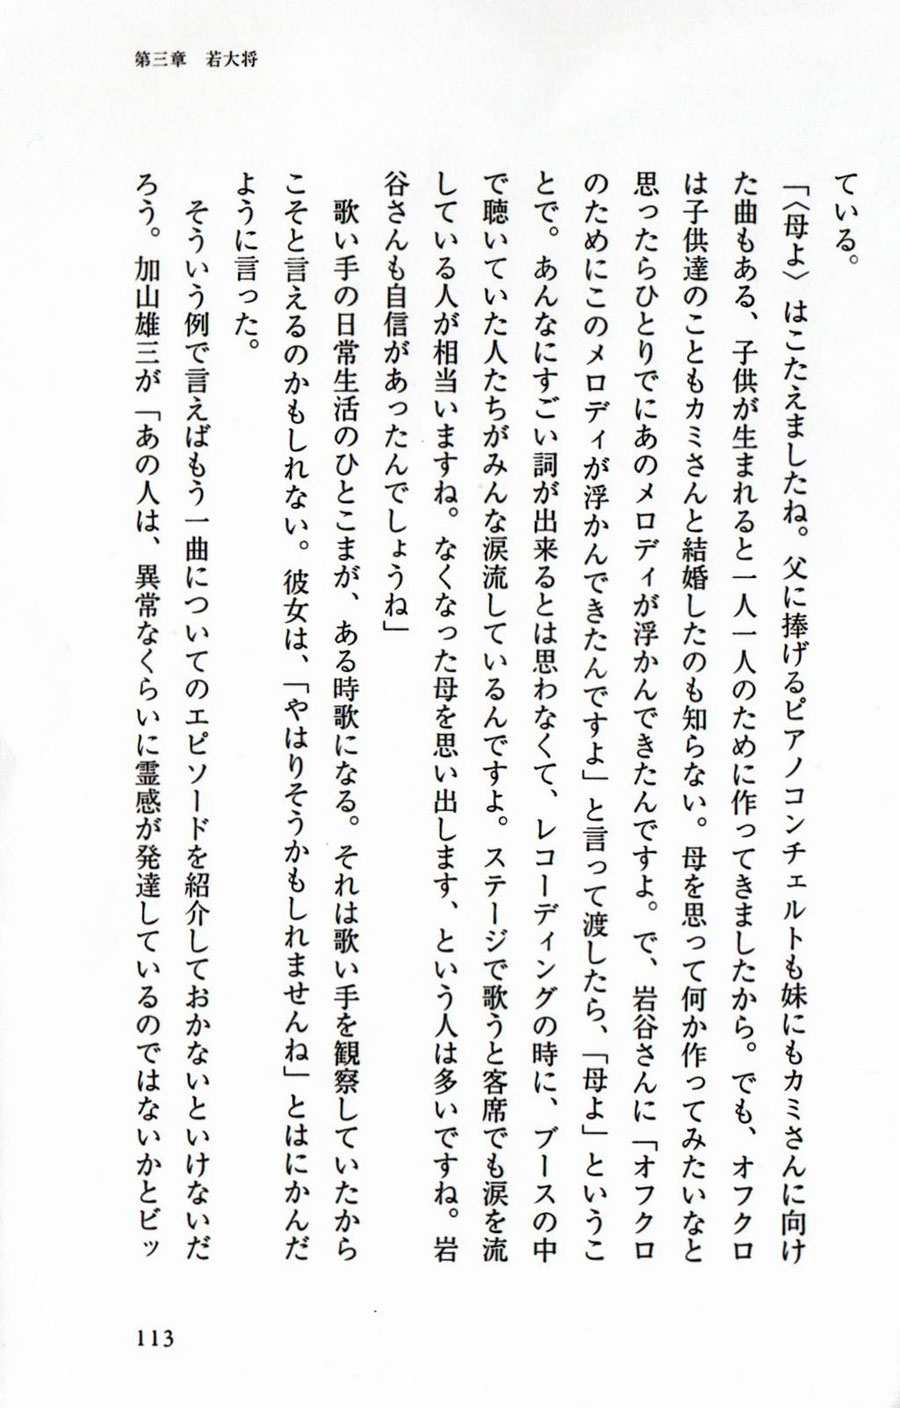 第三章　若大将
ている。
「〈母よ〉はこたえましたね。父に捧げるピアノコンチェルトも妹にもカミさんに向け
た曲もある、子供が生まれると一人一人のために作ってきましたから。でも、オフクロ
は子供達のこともカミさんと結婚したのも知らない。母を思って何か作ってみたいなと
思ったらひとりでにあのメロディが浮かんできたんですよ。で、岩谷さんに「オフクロ
のためにこのメロディが浮かんできたんですよ」と言って渡したら、「母よ」というこ
とで。あんなにすごい詞が出来るとは思わなくて、レコーディングの時に、ブースの中
で聴いていた人たちがみんな涙流しているんですよ。ステージで歌うと客席でも涙を流
している人が相当いますね。なくなった母を思い出します、という人は多いですね。岩
谷さんも自信があったんでしょうね」
　歌い手の日常生活のひとこまが、ある時歌になる。それは歌い手を観察していたから
こそと言えるのかもしれない。彼女は、「やはりそうかもしれませんね」とはにかんだ
ように言った。
　そういう例で言えばもう一曲についてのエピソードを紹介しておかないといけないだ
ろう。加山雄三が「あの人は、異常なくらいに霊感が発達しているのではないかとビッ
113